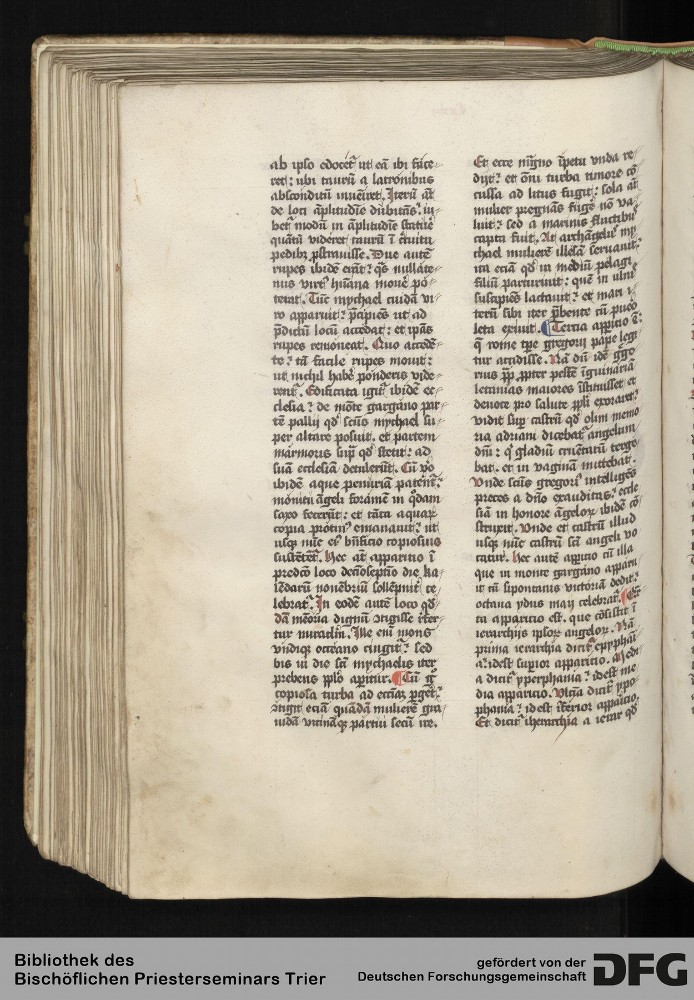 ab ipso edocet᷑ ut eā ibi face⸗
ret: ubi taurū a latronibus
absconditū inueiret. Iterū at̄
de loci āplitudīe dubitās: iu⸗
bet᷑ modū in āplitudīe statue᷑
quātū videret taurū ī circuitu
pedibꝫ pstrauisse. Due autē
rupes ibidē erāt: qᷤ nullate⸗
nus virt᷒ hūana mouē͛ po⸗
terat. Tūc mychael cuidā vi⸗
ro apparuit: p̄cipiēs ut ad
p̄dictū locū accedat: et ip̄as
rupes remoueat. Quo accedē⸗
te: tā facile rupes mouit:
ut nichil habē͛ ponderis vide⸗
rent᷑. Edificata igit᷑ ibidē ec⸗
clesia: de mōte gargano par⸗
tē pallij qd̄ sc̄us mychael su⸗
per altare posuit. et partem
marmoris sup̄ qd̄ stetit: ad
suā ecclesiā detulerūt. Cū v̊o
ibidē aque penuriā patērēt᷑:
monitu āgeli foramē in q̇dam
saxo fecerūt: et tāta aquaꝝ
copia protin᷒ emanauit: ut
usqꝫ nūc ei᷒ bn̄ficio copiosius
sustētēt᷑. Hec at̄ apparitio ī
predc̄o loco decīoseptīo die ka⸗
lēdarū nouēbriū sollēpnit᷑ ce⸗
lebrat᷑. In eodē autē loco qd̄⸗
dā mēoria dignū ↄtigisse iter⸗
tur miraclm̄. Ille eni mons
vndiqꝫ occeano cingit᷑: sed
bis in die sc̄i mychaelis iter
prebens pplo apitur. Cū ḡ
copiosa turba ad ecc̄iaꝫ pget᷑:
ↄtigit eciā quādā mulierē gra⸗
uidā vicināqꝫ partui secū ire.
Et ecce magno īpetu vnda re⸗
dijt: et om̄i turba timore cō⸗
cussa ad litus fugit: sola at̄
mulier pregnās fugē͛ nō va⸗
luit: sed a marinis fluctibꝫ
capta fuit. At archāgelus my⸗
chael mulierē illesā seruauit⸗
ita eciā qd̄ in mediū pelagi
filiū parturiuit: quē in ulnis
susceptēs lactauit: et mari i⸗
terū sibi iter p̄bente cū puero
leta exiuit. Tercia appitio ē:
q̄ rome tp̄e gregorij pape legi⸗
tur accidisse. Nā dū idē g̊go⸗
rius pp̄. ppter pestē īguinariā
letanias maiores īstituisset et
deuote pro salute ppli exoraret:
vidit sup castrū qd̄ olim memo⸗
ria adriani dicebat᷑ angelum
dn̄i: q̇ gladiū cruētatū terge⸗
bat. et in vaginā mittebat.
Vnde sc̄us gregori᷒ intelligēs
preces a dn̄o exauditas: eccle⸗
siā in honore āgeloꝝ ibidē cō⸗
struxit. Vnde et castrū illud
usqꝫ nūc castrū sc̄i angeli vo⸗
catur. Hec autē appicio cū illa
que in monte gargano apparu⸗
it cū sipontanis victoriā dedit:
octaua ydus maij celebrat᷑.
ta apparicio est. que cōsistit ī
ierarchijs ipsoꝝ angeloꝝ. Nā
prima ierarchia dicit᷑ epyphāi⸗
a: idest supior apparicio. Medi⸗
a dicit᷑ yperphania: idest me⸗
dia apparicio. Vltīa dicit᷑ ypo⸗
phania: idest īferior apparicio.
Et dicit᷑ iherarchia a ierar qd̄
Bibliothek des
Bischöflichen Priesterseminars Trier
gefördert von der
Deutschen Forschungsgemeinschaft
DFG